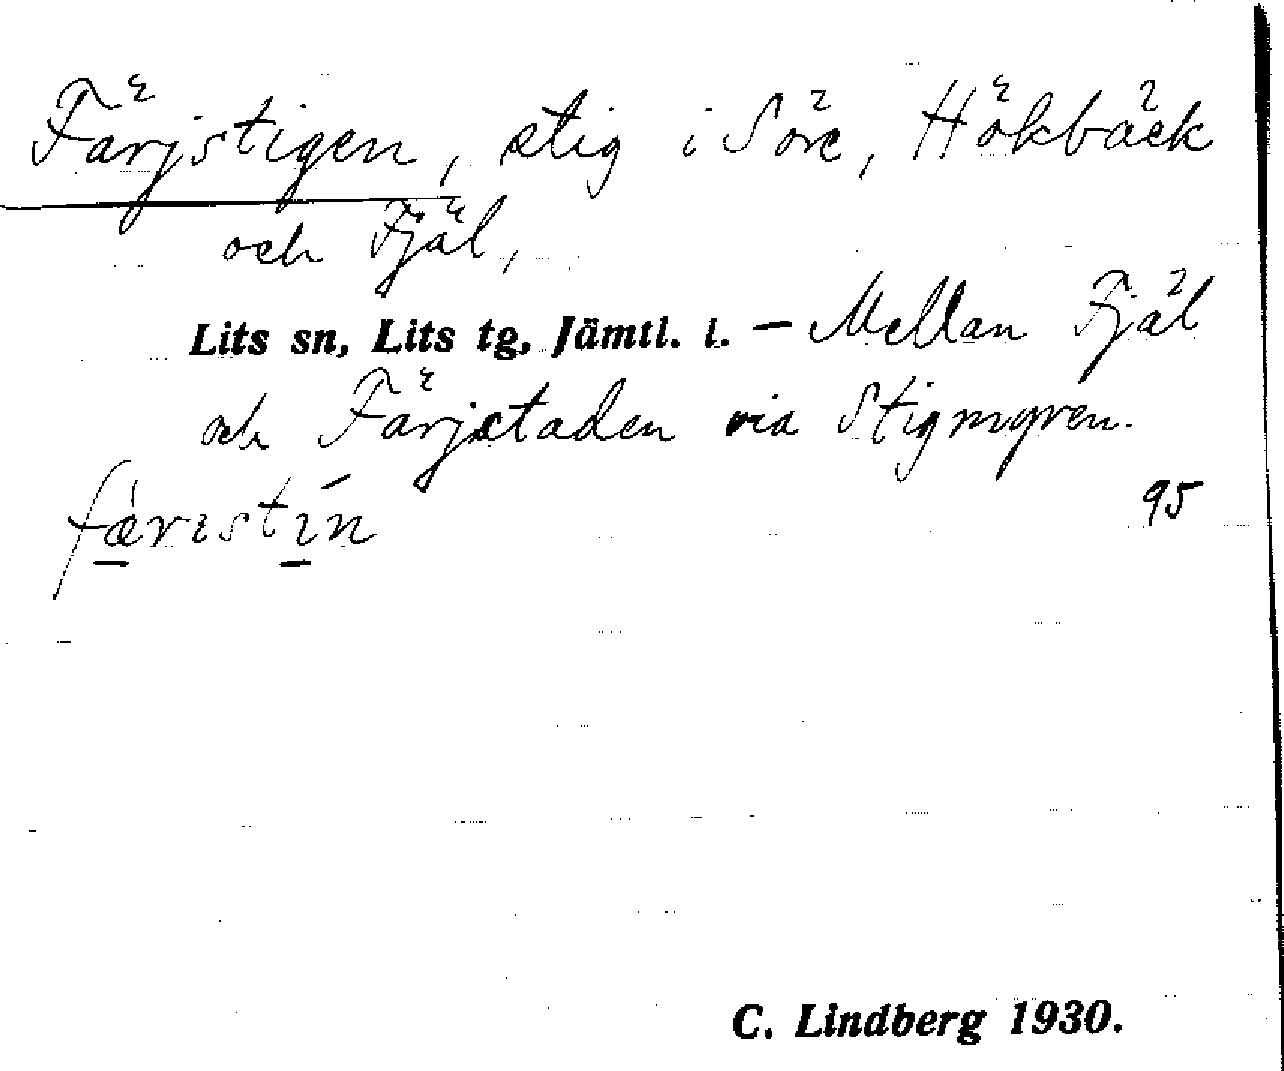 Färjstigen, stig i Söre, Hökbäck
och Fjäl,
Lits sn, Lits tg, Jämtl. l. – Mellan Fjäl
och Färjstaden via Stigmyren.
færıstín
95
C. Lindberg 1930.